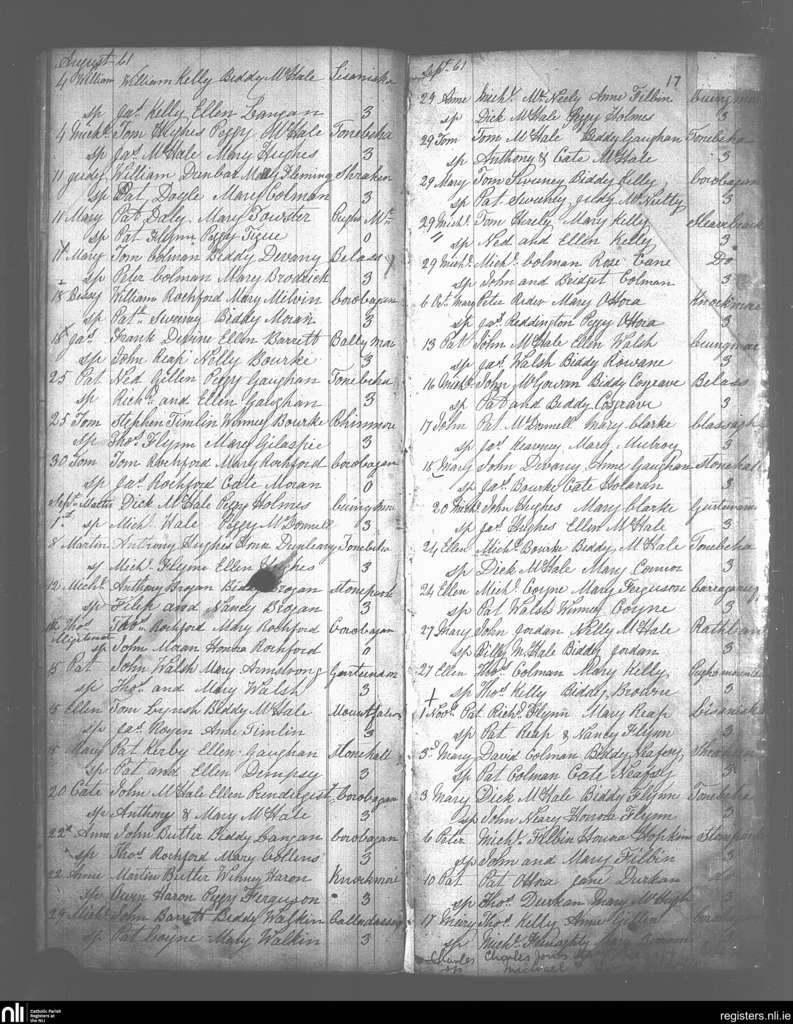 August 61
4 William William Kelly Biddy McHale Lisaniska
sp Jas Kelly Ellen Langan 3
4 Michl Tom Hughes Peggy McHale Tonebeha
sp Jas McHale Mary Hughes 3
11 Judy William Dunbar Mary Fleming Shraheen
sp Pat Doyle Mary Colman 3
11 Mary Pat Daly Mary Towster
sp Pat Flynn Peggy Tigue 0
Mary Tom Colman Biddy Devany Belass
sp Peter Colman Mary Brodrick 3
18 Bessy William Rochford Mary Milvin Corobagan
sp Patk Sweeney Biddy Moran 3
18 Jas Frank Devine Ellen Barrett Ballymac
sp John Reap Nelly Bourke 3
25 Pat Ned Gillen Peggy Gaughan Tonebeha
sp Richd and Ellen Gaughan 3
25 Tom Stephen Timlin Winney Bourke Rhinmore
sp Thos Flynn Mary Gilaspie 3
30 Tom Tom Rochford Mary Rochford Corobagan
sp Jas Rochford Cate Moran 0
Sept Dick McHale Peggy Holmes
1st sp Michl Wale Peggy McDonnell 3
8 Martin Anthony Hughes Anne Dunleavy Tonebeha
sp Michl Flynn Ellen Hughes 3
12 Michl Anthony Brogan Biddy Brogan Stonepark
sp Philip and Nancy Brogan 3
Thos Thos Rochford Mary Rochford Corobagan
Illigitimate sp John Moran Honna Rochford 0
15 Pat John Walsh Mary Armstrong
sp Thos and Mary Walsh 3
Ellen Tom Lynsh Biddy McHale
sp Jas Rogen Anne Timlin 3
Mary Pat Kerby Ellen Gaughan Stonehall
sp Pat and Ellen Dempsy 3
20 Cate John McHale Ellen Prendergist Corobagan
sp Anthony & Mary McHale 3
22d Anne John Butler Biddy Langan Corobagan
sp Thos Rochford Mary Collens 3
22 Anne Martin Butler Winney Haron Knockmore
sp Owen Haron Peggy Ferguson 3
29 Michl John Barrett Biddy Walkin
sp Pat Coyne Mary Walkin 3
Sept. 61 17
29 Anne Michl McNeely Anne Filbin
sp Dick McHale Peggy Holmes 3
29 Tom Tom McHale Biddy Gaughan Tonebeha
sp Anthony & Cate McHale 3
29 Mary Tom Sweeney Biddy Kelly Corobagan
sp Pat Sweeney Judy McNulty 3
29 Michl Tom Hirely Mary Kelly
" sp Ned and Ellen Kelly 3
29 Michl Michl Colman Rose Cane Do
sp John and Bridget Colman 3
6 Oct Mary Peter Reder Mary OHora Knockmore
sp Jas Reddington Peggy OHora 3
13 Pat John McHale Ellen Walsh
sp Jas Walsh Biddy Rowane 3
16 Michl John McGowan Biddy Cosgrave Belass
sp Pat and Biddy Cosgrave 3
17 John Pat McDonnell Mary Clarke
sp Jas Kearney Mary Mulroy 3
18 Mary John Devaney Anne Gaughan Stonehall
sp Jas Bourke Cate Holaran 3
20 Michl John Hughes Mary Clarke
sp Jas Hughes Ellen McHale 3
24 Ellen Michl Bourke Biddy McHale Tonebeha
sp Dick McHale Mary Connor 3
24 Ellen Michl Coyne Mary Ferguson
sp Pat Walsh Winney Coyne 3
27 Mary John Jordan Nelly McHale
sp Billy McHale Biddy Jordan 3
27 Ellen Thos Colman Mary Kelly
sp Thos Kelly Biddy Brown 3
1 Novr Pat Richd Flynn Mary Reap Lisaniska
sp Pat Reap & Nancy Flynn 3
3d Mary David Colman Biddy Neafsey Shraheen
sp Pat Colman Cate Neafsey 3
3 Mary Dick McHale Biddy Flynn Tonebeha
sp John Neary Honora Flynn 3
6 Peter Michl Filbin Honna Hopkin Stonepark
sp John and Mary Filbin 3
10 Pat Pat OHora Jane Durkan do
sp Thos Durkan Mary McHugh 3
17 Mary Thos Kelly Anne Gillen
sp Michl Mary
Charles Charles Jones
sp Michael
nli Catholic Parish Registers at the NLI
registers.nli.ie